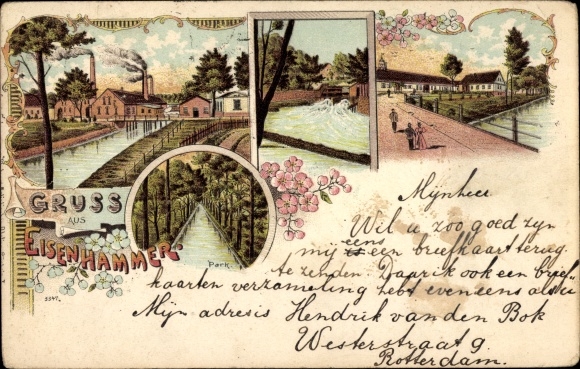 GRUSS
AUS
EISENHAMMER.
Park.
5541.
Mynheer
Wil u zoo goed zyn
mij eens een briefkaart terug
te zenden. Daar ik ook een brief
kaarten verzameling hebt eveneens als u
Mijn adres is Hendrik van den Bok
Westerstraat 9.
Rotterdam.